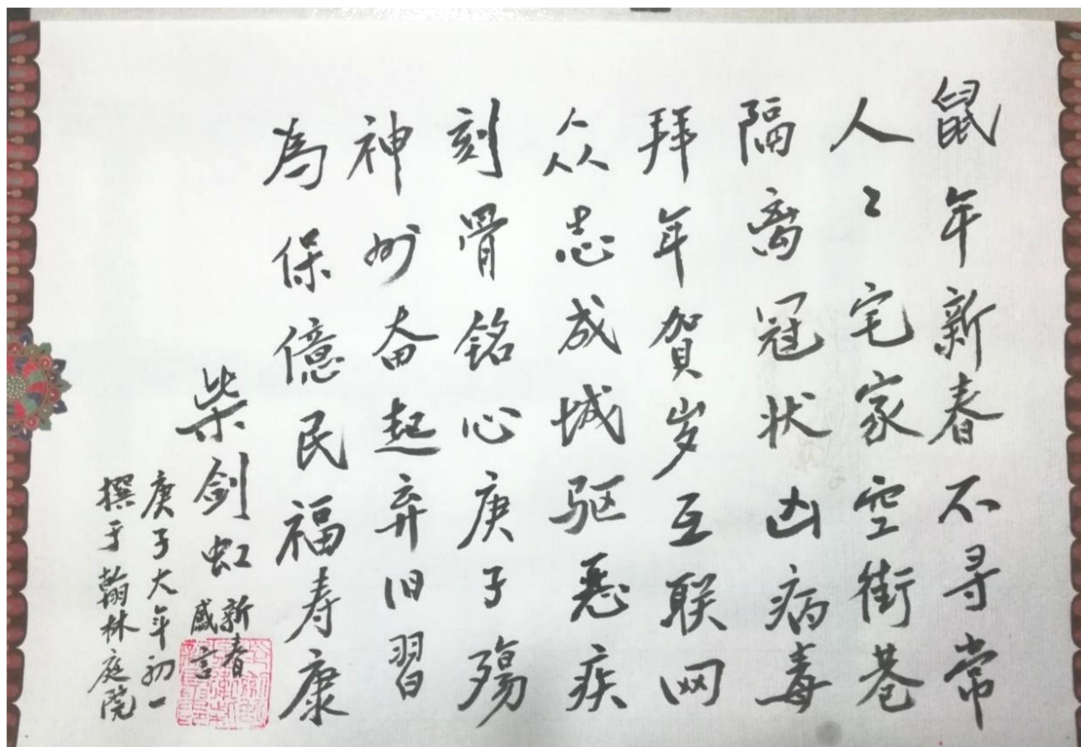 鼠年新春不寻常
人〻宅家空街巷
隔离冠状凶病毒
拜年贺岁互联网
众志成城驱恶疾
刻骨铭心庚子殇
神州奋起弃旧習
為保億民福寿康
柴剑虹新春感言
庚子大年初一
撰于翰林庭院